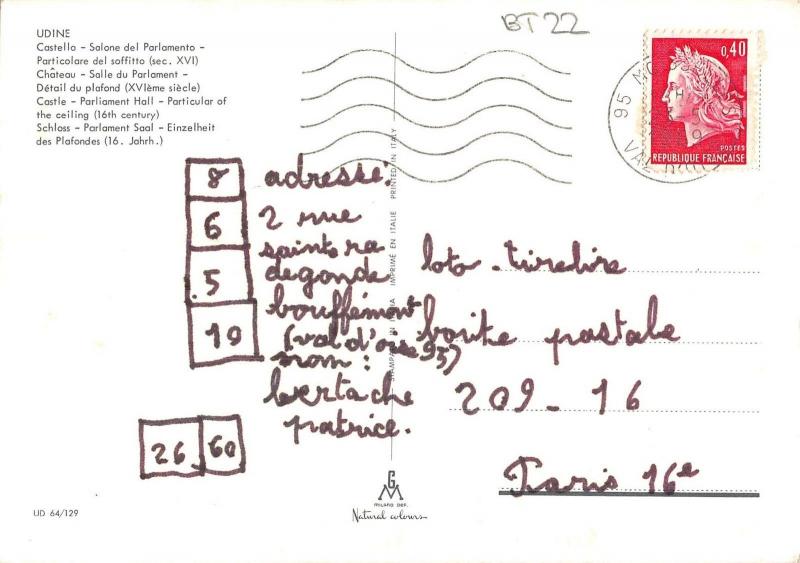 UDINE
Castello - Salone del Parlamento -
Particolare del soffitto (sec. XVI)
Château - Salle du Parlament -
Détail du plafond (XVIème siècle)
Castle - Parliament Hall - Particular of
the ceiling (16th century)
Schloss - Parlament Saal - Einzelheit
des Plafondes (16. Jahrh.)
BT22
0,40
POSTES
REPUBLIQUE FRANÇAISE
95
8
6
5
19
26 60
adresse:
2 rue
sainte ra
degonde
bouffémont
(val d'oise 95)
nom:
bertache
patrice.
PRINTED IN ITALY
IMPRIMÉ EN ITALIE
loto-tirelire
boite postale
209-16
Paris 16e
GM
MILANO DEP.
Natural colours
UD 64/129